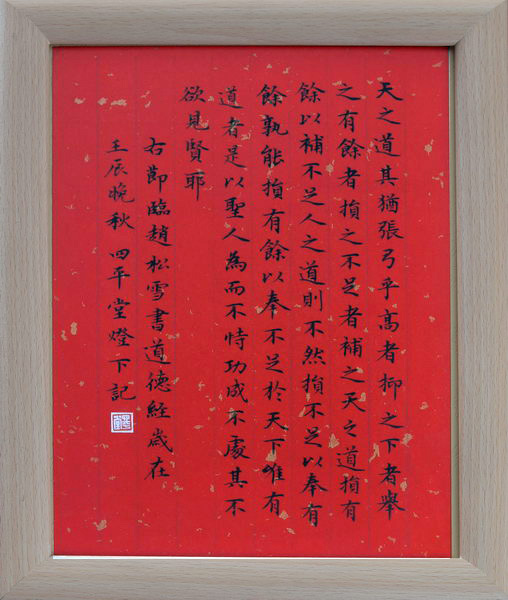 天之道其猶張弓乎高者抑之下者舉
之有餘者損之不足者補之天之道損有
餘以補不足人之道則不然損不足以奉有
餘孰能損有餘以奉不足於天下唯有
道者是以聖人為而不恃功成不處其不
欲見賢耶
右節臨趙松雪書道德經歲在
壬辰晚秋四平堂燈下記